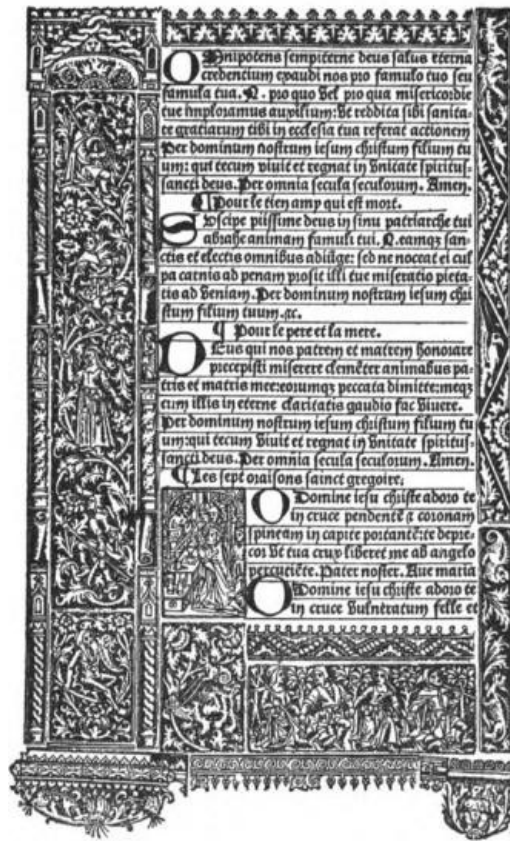 OMnipotens sempiterne deus salus eterna
credentium exaudi nos pro famulo tuo seu
famula tua. N. pro quo vel pro qua misericordie
tue imploramus auxilium: vt reddita sibi sanita-
te gratiarum tibi in ecclesia tua referat actionem
Per dominum nostrum iesum christum filium tu
um: qui tecum viuit et regnat in vnitate spiritus-
sancti deus. Per omnia secula seculorum. Amen.
¶ Pour le tien amp qui est mort.
SVscipe piissime deus in sinu patriarche tui
abrahe animam famuli tui. N. eamqz san-
ctis et electis omnibus adiũge: sed ne noceat ei cul
pa carnis ad penam prosit illi tue miseratio pieta-
tis ad veniam. Per dominum nostrum iesum chri
stum filium tuum. ⁊c.
¶ Pour le pere et la mere.
DEus qui nos patrem et matrem honorare
precepisti miserere clemẽter animabus pa-
tris et matris mee: eorumqz peccata dimitte: meqz
cum illis in eterne claritatis gaudio fac viuere.
Per dominum nostrum iesum christum filium tu
um: qui tecum viuit et regnat in vnitate spiritus-
sancti deus. Per omnia secula seculorum. Amen.
¶ Les sept oraisons sainct gregoire.
O Domine iesu christe adoro te
in cruce pendentẽ ⁊ coronam
spineam in capite portantẽ: te depre-
cor vt tua crux liberet me ab angelo
percutiẽte. Pater noster. Aue maria
O Domine iesu christe adoro te
in cruce vulneratum felle et